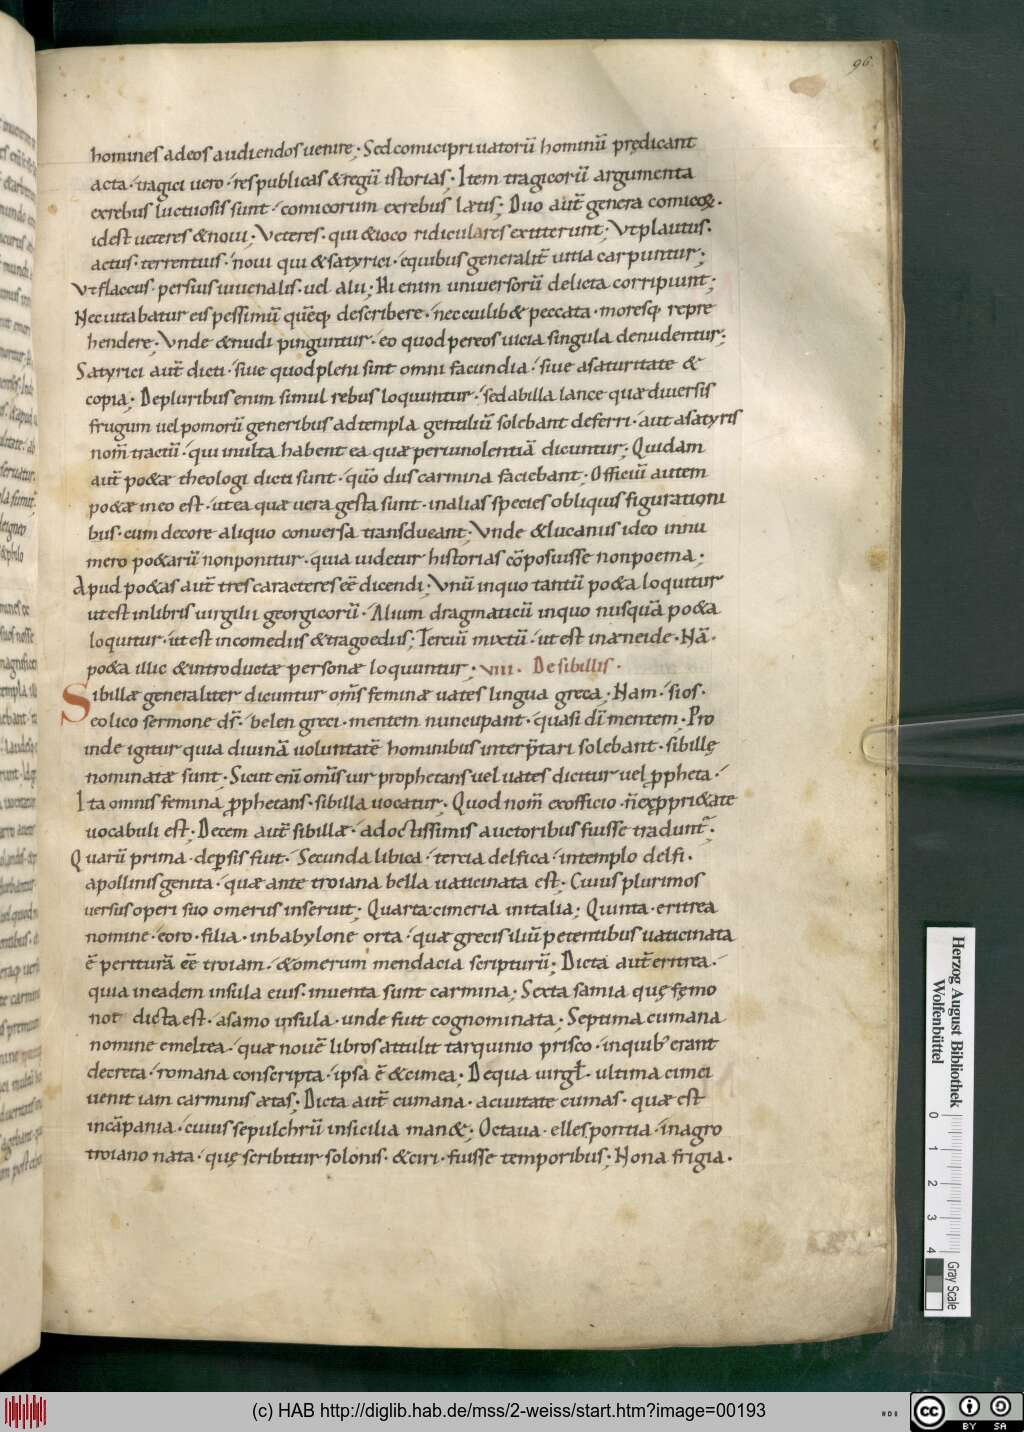 96.
homines adeos audiendos uenire; Sed comici priuatorū hominū prędicant
acta· tragici uero· res publicas & regū istorias; Item tragicorū argumenta
exrebus luctuosis sunt· comicorum exrebus lætis; Duo aut̄ genera comicoꝝ·
idest ueteres & noui; Veteres· qui & ioco ridiculares extiterunt; Vt plautus·
actus· terrentius· noui qui & satyrici· equibus generalit̄ uitia carpuntur;
Vt flaccus· persius iuuenalis· uel alii; Hi enim uniuersorū delicta corripiunt;
Nec uitabatur eis pessimū quēq; describere· nec cuilib& peccata· moresq; repre
hendere; Vnde & nudi pinguntur· eo quod per eos uicia singula denudentur;
Satyrici aut̄ dicti· siue quod pleni sint omni facundia· siue asaturitate &
copia; De pluribus enim simul rebus loquuntur· sed ab illa lance quæ diuersis
frugum uel pomorū generibus ad templa gentiliū solebant deferri· aut asatyris
nom̄ tractū· qui inulta habent ea quæ per uinolentiā dicuntur; Quidam
aut̄ po&æ theologi dicti sunt· quō diis carmina faciebant; Officiū autem
po&æ in eo est· ut ea quæ uera gesta sunt· in alias species obliquis figurationi
bus· cum decore aliquo conuersa transducant; Vnde & lucanus ideo innu
mero po&arū non ponitur· quia uidetur historias cōposuisse non poema;
Apud po&as aut̄ tres caracteres eē dicendi; Vnū in quo tantū po&a loquitur
ut est in libris uirgilii georgicorū· Alium dragmaticū in quo nusquā po&a
loquitur· ut est in comediis & tragoediis; Terciū mixtū· ut est in æneide· Nā·
po&a illic & introductæ personæ loquuntur; VIII· De sibillis·
Sibillæ generaliter dicuntur om̄s feminæ uates lingua greca; Nam· sios·
eolico sermone dr̄· belen greci· mentem nuncupant· quasi dī mentem; Pro
inde igitur quia diuinā uoluntatē hominibus interp̄tari solebant· sibillę
nominatæ sunt; Sicut enī omīs uir prophetans uel uates dicitur uel ꝓpheta·
Ita omnis femina ꝓphetans· sibilla uocatur; Quod nom̄ exofficio· n̄ ex ꝓpri&ate
uocabuli est; Decem aut̄ sibillæ· adoctissimis auctoribus fuisse tradunt̄·
Quarū prima· depsis fuit· Secunda libica· tercia delfica· in templo delfi·
apollinis genita· quæ ante troiana bella uaticinata est; Cuius plurimos
uersus operi suo omerus inseruit; Quarta cimeria in italia; Quinta· eritrea
nomine· eoro· filia· in babylone orta· quæ grecis iliū petentibus uaticinata
ē periturā eē troiam· & omerum mendacia scripturū; Dicta aut̄ eritrea·
quia in eadem insula eius· inuenta sunt carmina; Sexta samia quę sęmo
not dicta est· asamo insula· unde fuit cognominata; Septima cumana
nomine emeltea· quæ nouē libros attulit tarquinio prisco· in quib; erant
decreta· romana conscripta· ipsa ē & cimea; De qua uirgł· ultima cimei
uenit iam carminis ætas; Dicta aut̄ cumana· aciuitate cumas· quæ est
in cāpania· cuius sepulchrū in sicilia man&; Octaua· ellespontia· in agro
troiano nata· quę scribitur solonis· & ciri· fuisse temporibus; Nona frigia·
Herzog August Bibliothek
Wolfenbüttel
0 1 2 3 4
Gray Scale
(c) HAB http://diglib.hab.de/mss/2-weiss/start.htm?image=00193
cc BY SA